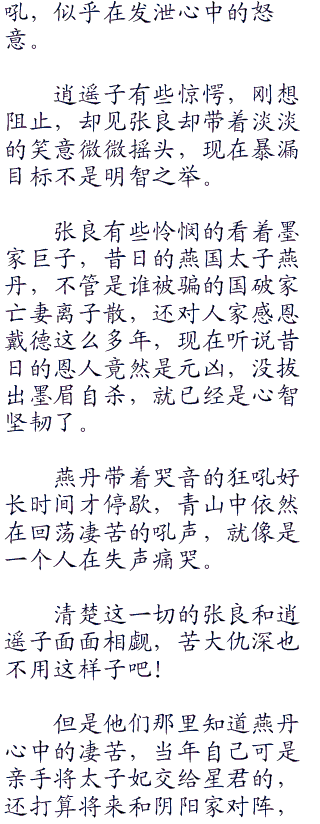 吼，似乎在发泄心中的怒
意。
逍遥子有些惊愕，刚想
阻止，却见张良却带着淡淡
的笑意微微摇头，现在暴漏
目标不是明智之举。
张良有些怜悯的看着墨
家巨子，昔日的燕国太子燕
丹，不管是谁被骗的国破家
亡妻离子散，还对人家感恩
戴德这么多年，现在听说昔
日的恩人竟然是元凶，没拔
出墨眉自杀，就已经是心智
坚韧了。
燕丹带着哭音的狂吼好
长时间才停歇，青山中依然
在回荡凄苦的吼声，就像是
一个人在失声痛哭。
清楚这一切的张良和逍
遥子面面相觑，苦大仇深也
不用这样子吧！
但是他们那里知道燕丹
心中的凄苦，当年自己可是
亲手将太子妃交给星君的，
还打算将来和阴阳家对阵，